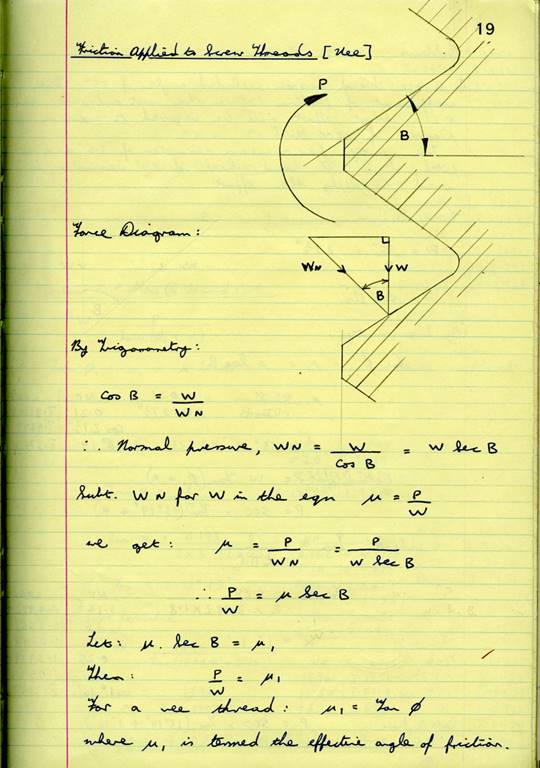 19
Friction Applied to Screw Threads [Vee]
P
B
Force Diagram:
WN
W
B
By Trigonometry:
cos B = W/WN
∴ Normal pressure, WN = W/cos B = W sec B
Subt. WN for W in the eqn μ = P/W
we get: μ = P/WN = P/W sec B
∴ P/W = μ sec B
Let: μ. sec B = μ₁
Then: P/W = μ₁
For a vee thread: μ₁ = Tan φ
where μ₁ is termed the effective angle of friction.